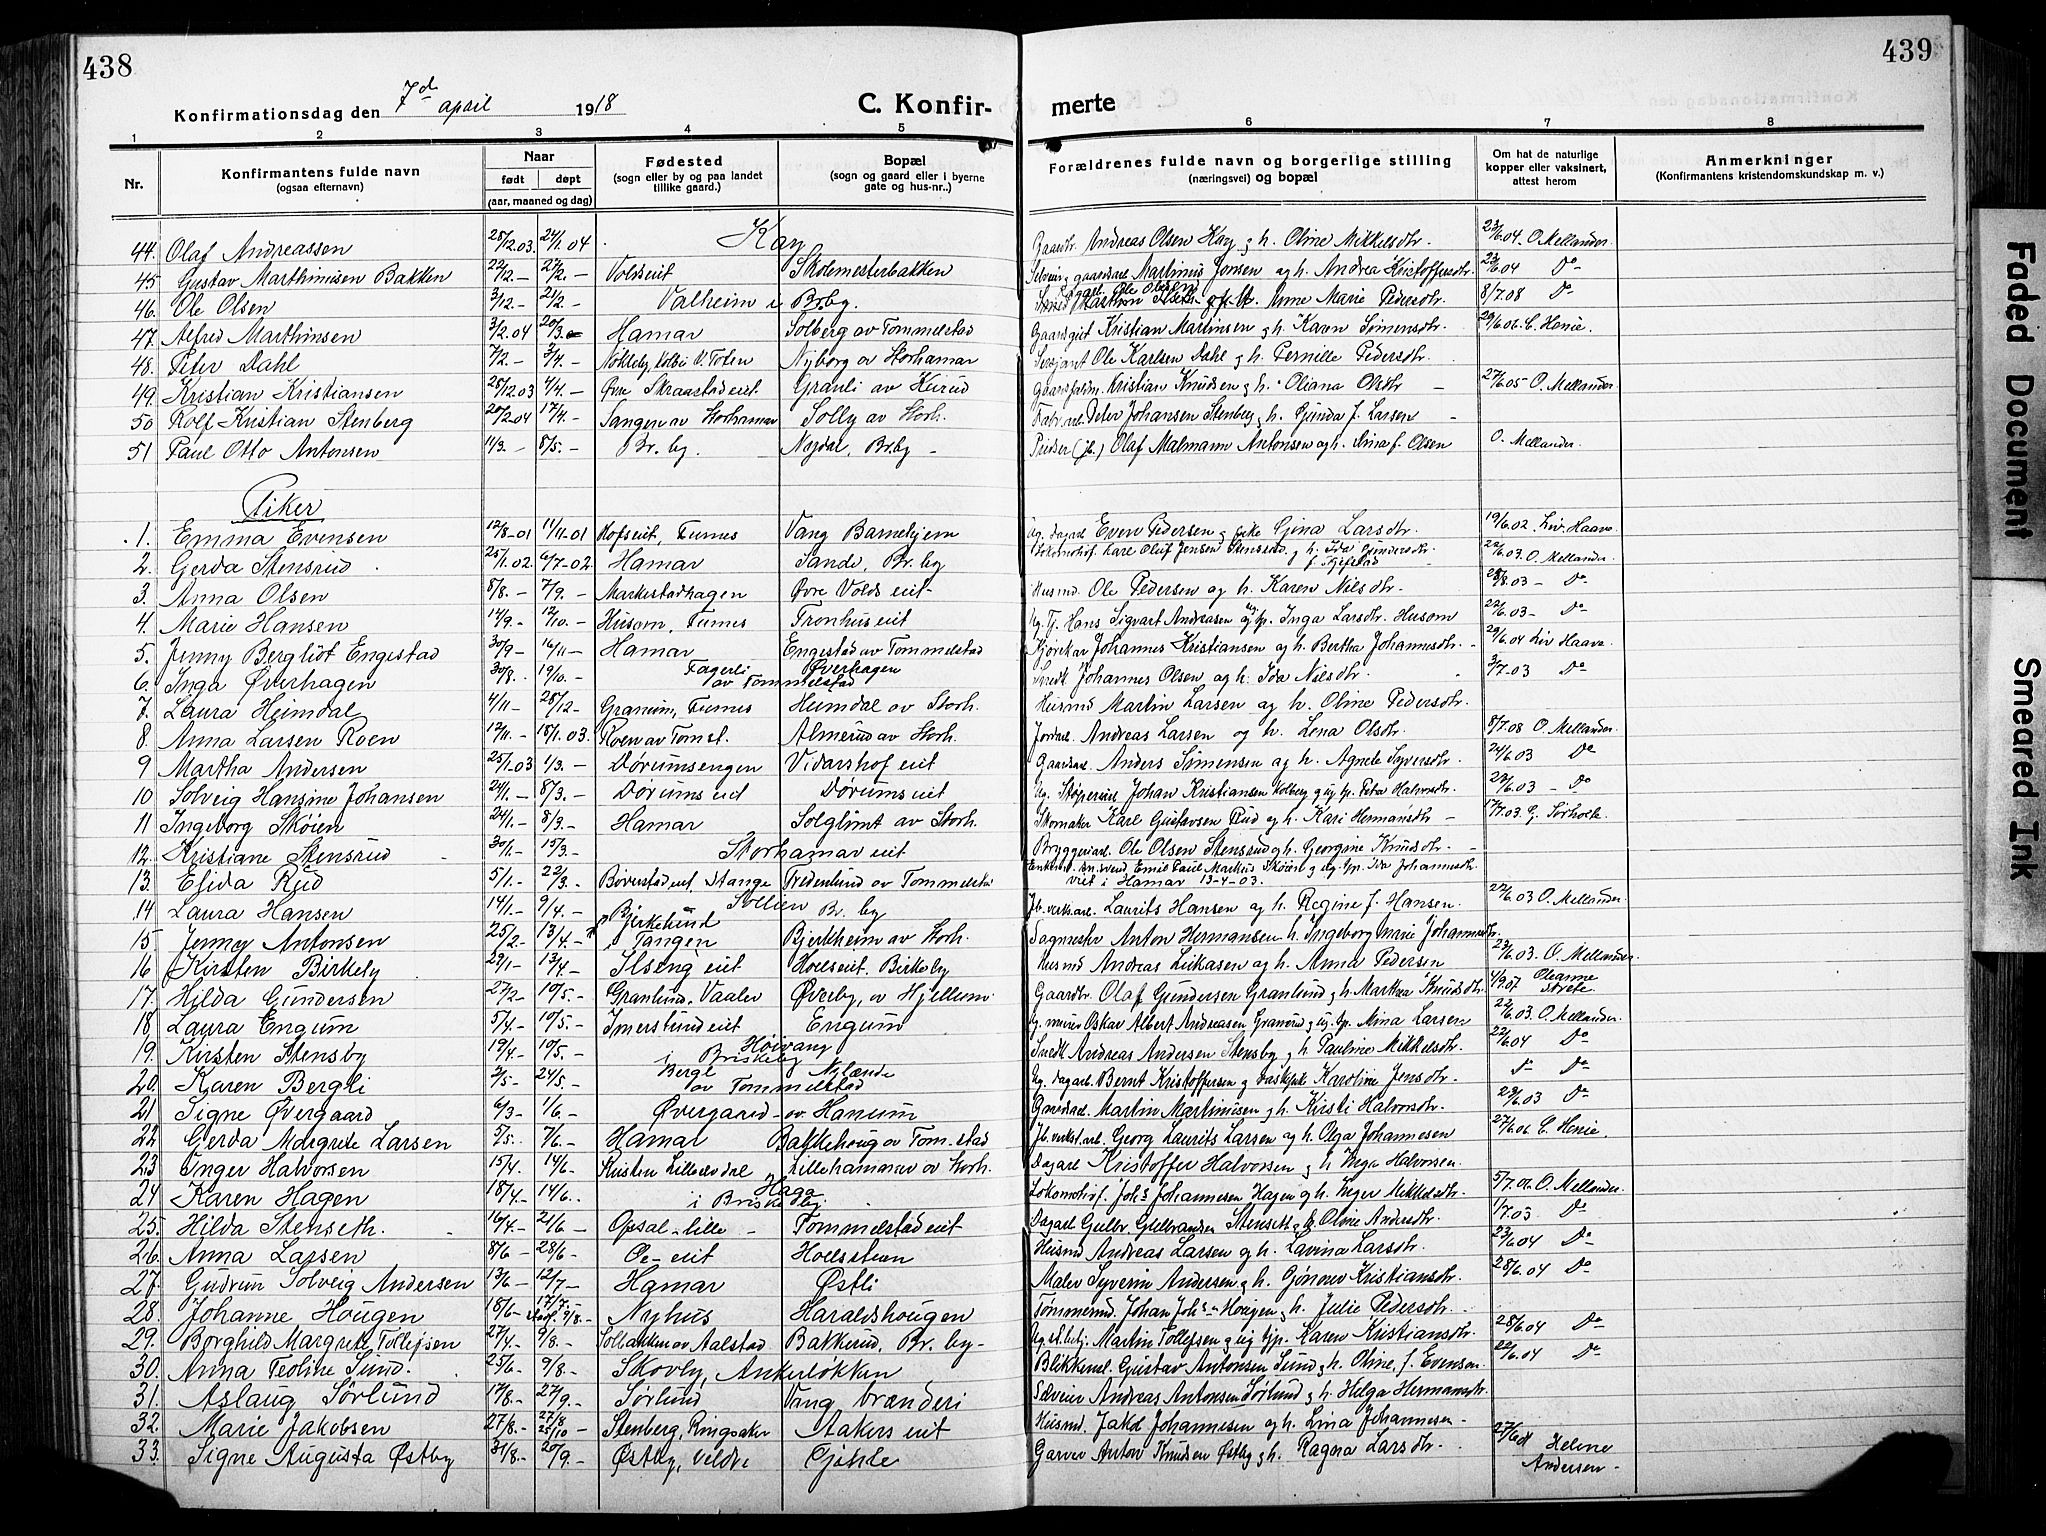 438
439
Konfirmationsdag den 7d april 1918
C. Konfir-
merte
1 2 3 4 5 6 7 8
Nr.
Konfirmantens fulde navn
(ogsaa efternavn)
Naar
født døpt
(aar, maaned og dag)
Fødested
(sogn eller by og paa landet
tillike gaard.)
Bopæl
(sogn og gaard eller i byerne
gate og hus-nr..)
Forældrenes fulde navn og borgerlige stilling
(næringsvei) og bopæl
Om hat de naturlige
kopper eller vaksinert,
attest herom
Anmerkninger
(Konfirmantens kristendomskundskap m. v.)
44. Olaf Andreassen 25/12.03. 24/1.04 Kay Gaardbr. Andreas Olsen Kay g h. Oline Mikkelsdtr. 23/6.04. O. Mellander.
45 Gustav Marthinusen Bakken 22/12.- 27/2.- Voldseiet Skolemesterbakken Martinus Jonsen og h. Andrea Kristoffersdtr. 23/6.04 Do
46. Ole Olsen 3/12- 21/2.- Valheim i Br.by. Ole Olsen Anne Marie Pedersdtr. 8/7.08 Do
47. Alfred Marthinsen 3/2.04 20/3. Hamar Solberg av Tommelstad Gaardsgut Kristian Martinsen g h. Karen Simensdtr. 29/6.06. C. Henie.
48. Peter Dahl 7/2.- 3/4.- V. Toten Nyborg av Storhamar Sersjant Ole Karlsen Dahl g h. Pernille Pedersdtr.
49. Kristian Kristiansen 25/12.03 4/4.- Øvre Skraastad eiet. Granli av Keirud Kristian Knudsen g h. Oliana Olsdtr 27/6.05 O. Mellander
50 Rolf Kristian Stenberg 20/2.04 17/4.- Tangen av Storhamar Solly av Storh. Fabr.arb. Peter Johansen Stenberg, h. Gunda f. Larsen
51 Paul Otto Antonsen 11/3.- 8/5.- Br. by. Nordal, Br.by Olaf Malmann Antonsen og h. Lina f. Olsen O. Mellander.
Piker
1. Emma Evensen 12/8-01 11/11-01 Hofseiet, Furnes Vang Barnehjem Ug. dagarb. Even Pedersen g pike Gina Larsdtr. 19/6.02. Liv. Haave
2. Gerda Stensrud 25/1.02. 6/7-02 Hamar Sande, Br. by Lokomotivf. Karl Oluf Jensen Stensrud g h. Ida Gundersdtr. 22/6.03. O. Mellander.
f. Skjefstad
3. Anna Olsen 8/8.- 7/9.- Markestadhagen Øvre Volds eiet- Husmd. Ole Pedersen og h. Karen Nilsdtr. 28/8.03- Do
4. Marie Hansen 14/9.- 12/10.- Husom, Furnes Fronhus eiet Ug. Tj. Hans Sigvart Andreasen og ug. tp. Inga Larsdtr. Husom 22/6.03- Do
5. Jenny Bergliot Engestad 30/9- 16/11- Hamar Engestad av Tommelstad Kjørekar Johannes Kristiansen og h. Bertha Johannesdtr. 29/6.04 Liv Haave
6. Inga Øverhagen 30/8.. 19/10.- Fagerli Øverhagen Snedk. Johannes Olsen og h. Ida Nilsdtr. 3/7-03 Do
av Tommelstad
7. Laura Heimdal 4/11- 28/12- Granum, Furnes Heimdal av Storh. Husmd Martin Larsen og h. Oline Pedersdtr.
8. Anna Larsen Roen 12/11.- 18/1.03. Roen av Tomst. Almerud av Storh. Jordarb. Andreas Larsen og h. Lena Olsdtr. 8/7.08 O. Mellander.
9 Martha Andersen 25/1.03 1/3.- Dørumsengen Vidarshof eiet Gaardsarb. Anders Simensen og h. Agnete Syversdtr. 24/6.03 Do
10 Solveig Hansine Johansen 24/1.- 8/3.- Dørums eiet Dørums eiet Ug. Støperiarb. Johan Kristiansen Kolberg g ug. tp. Petra Halvorsdtr. 22/6.03- Do
11 Ingeborg Skøien 24/1.- 8/3.- Hamar Solglimt av Storh. Skomaker Karl Gustavsen Rud og h. Kari Hermansdtr 17/7.03. G. Sørholte.
12. Kristiane Stensrud 30/1.- 15/3.- Storhamar eiet Bryggeriarb. Ole Olsen Stensrud g h. Georgine Knudsdtr.
13. Elida Rud 5/1.- 22/3.- Børrestad eiet, Stange Fredenlund av Tommelsta Emil Paul Markus Skøien g ug. tp. Ida Johannesdtr.
viet i Hamar 13-4-03.
14 Laura Hansen 14/1.- 9/4.- Sollien Br. by Jb. verks.arb. Laurits Hansen og h. Regine f. Hansen. 22/6.03 O. Mellander.
15. Jenny Antonsen 25/2- 13/4.- Bjerkelund Tangen Bjerkheim av Storh. Sagmester Anton Hermansen h. Ingeborg Marie Johannesdtr.
16 Kirsten Birkely 29/1- 13/4.- Ilseng eiet Hoelseiet. Birkeby Husmd Andreas Lukasen og h. Anna Pedersen 23/6.03. O. Mellander.
17. Hilda Gundersen 27/2- 10/5.- Granlund, Vaaler Øverby, av Hjellum Gaardbr. Olaf Gundersen Granlund g h. Marthea Knudsdtr. 4/9.07 Oleanne Strete.
18. Laura Engum 5/4.- 10/5.- Imerslund eiet Engum Ug. murer Oskar Albert Andreasen Granrud g ug. tp. Mina Larsen 22/6.03. O. Mellander.
19. Kirsten Stensby 19/4- 10/5.- Høivang Snedk. Andreas Andersen Stensby g h. Pauline Mikkelsdtr. 22/6.04 Do
i Briskeby
20. Karen Bergli 2/5- 24/5.- Berge Nylænde Ug. dagarb. Bernt Kristoffersen g Karoline Jensdtr. Do Do
av Tommelstad
21 Signe Øvergaard 6/3- 1/6.- Øvergaard av Hanum Martin Martinusen g h. Kirsti Halvorsdtr. 23/6.03 Do
22 Gerda Margrete Larsen 5/5.. 7/6.- Hamar Bakkehoug av Tom.stad Jb. verkst.arb. Georg Laurits Larsen og h. Olga Johannesen 27/6.06 C. Henie.
23 Inger Halvorsen 15/4. 14/6.- Lilleelvdal Lillehammer av Storh. Dagarb. Kristoffer Halvorsen g h Inga Halvorsen.
24 Karen Hagen 18/4.- 14/6.. Haga Lokomotivf. Johs Johannesen Hagen g h. Inger Mikkelsdtr. 5/7.06 O. Mellander.
i Briskeby
25. Hilda Stenseth. 16/4.- 21/6- Opsal-lille Tommelstad eiet Dagarb Gulbr. Gulbrandsen Stenseth g h. Oline Andersdtr. 1/7.03 Do
26. Anna Larsen 8/6- 28/6- Oe- eiet Hoelsstuen Husmd Andreas Larsen g h. Lavina Larsdtr. 23/6.04 Do
27. Gudrun Solveig Andersen 13/6- 12/7- Hamar Østli Maler Syverin Andersen g h. Gjönner Kristiansdtr. 28/6.04 Do
28. Johanne Hougen 18/6- 17/7.- stadf. 9/8.- Nyhus Haraldshougen Tømmermd. Johan Johsn Hougen g h. Julie Pedersdtr.
29. Borghild Margrete Tollefsen 27/4.- 9/8- Solbakken av Aalstad Bakkerud, Br. by- Ug. st.betj. Martin Tollefsen g ug tjp. Karen Kristiansdtr. 28/6.04 Do
30. Anna Teoline Sund. 25/6- 9/8.- Skovly, Ankerløkken Blikkensl. Gustav Antonsen Sund g h. Oline, f. Evensen 22/6.04 Do
31. Aslaug Sørlund 17/8.- 27/9.- Sørlund Vang brænderi Andreas Antonsen Sørlund g h. Helga Hermansdtr.
32. Marie Jakobsen 27/8.- 27/8 25/10 - Stenberg, Ringsaker Aakers eiet Husmd. Jakob Johannesen og h. Lina Johannesen
33. Signe Augusta Østby 31/8.- 20/9.- Østby, Veldre Gjøvle Garver Anton Knudsen Østby g h. Ragna Larsdtr. 27/6.04 Helene
Andersen-
Faded Document
Smeared Ink